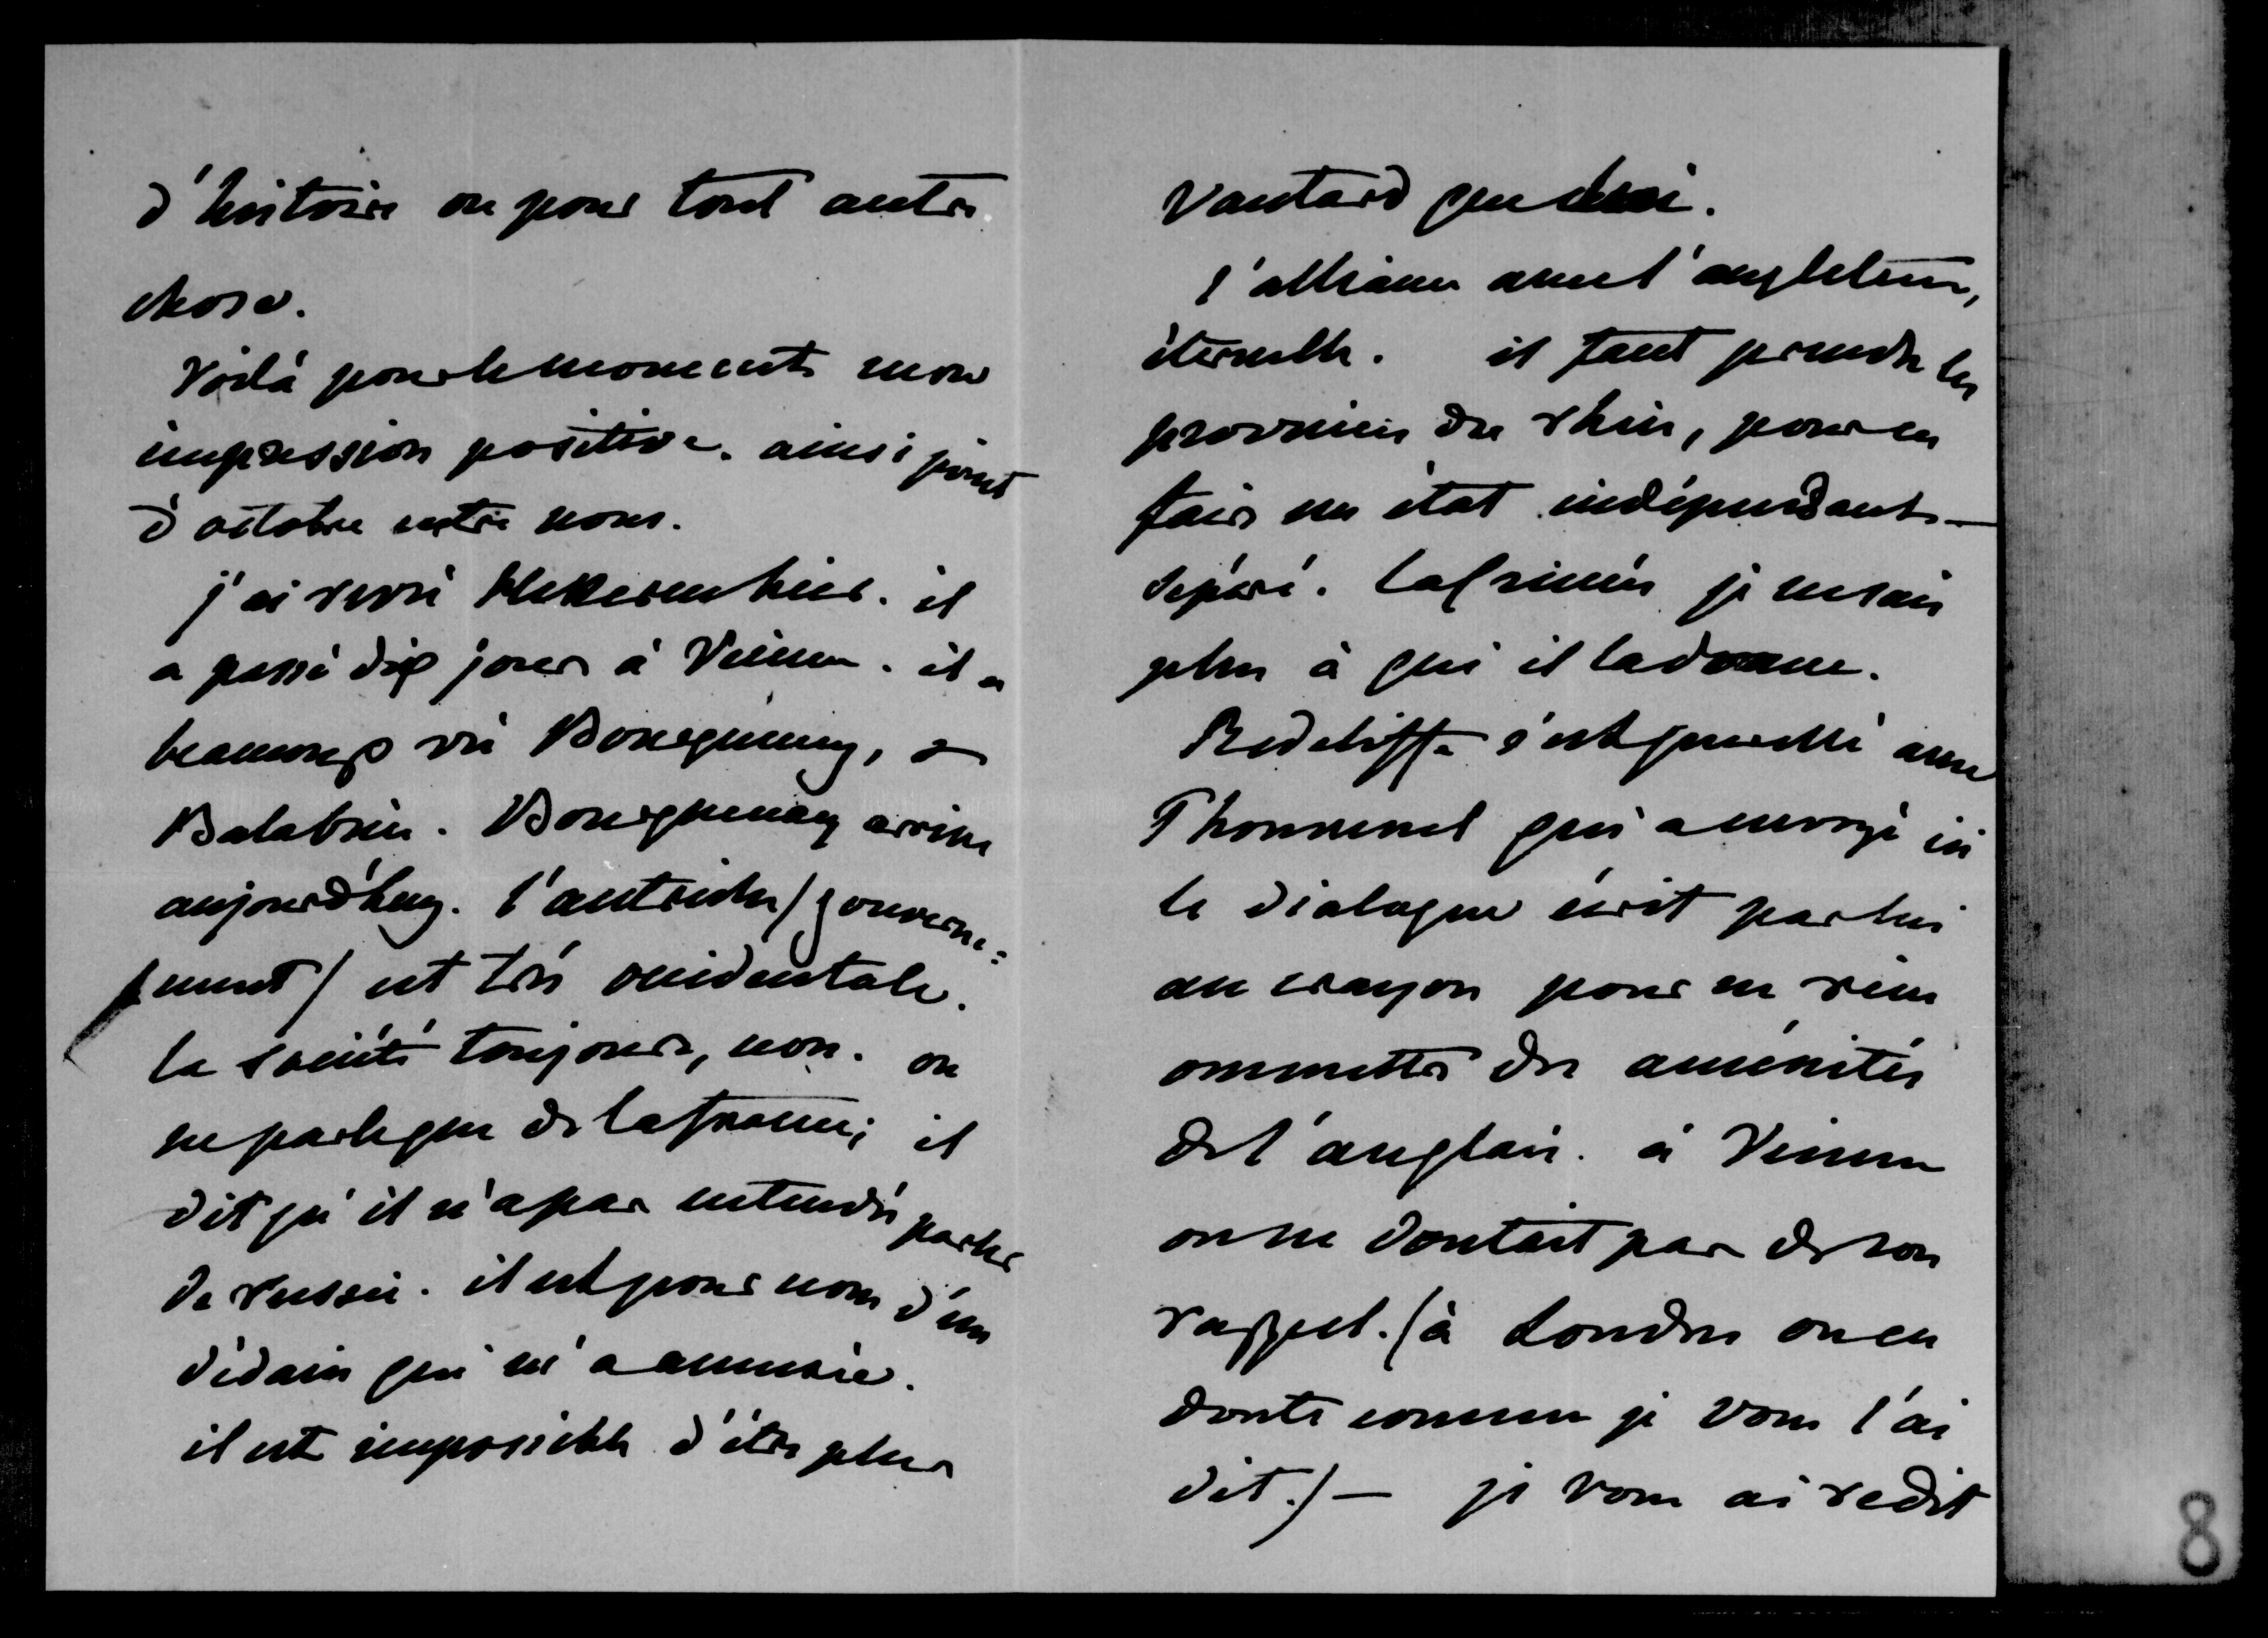 d'histoire ou pour tout autre
chose.
Voilà pour le moment mon
impression positive. ainsi point
d'octobre entre nous.
j'ai revu Hekeren hier. il
a passé dix jours à Vienne. il a
beaucoup vu Bourqueney, &
Balabin. Bourqueney arrive
aujourd'huy. l'autriche / gouverne=
ment / est très occidentale.
la société toujours, non. on
ne parle que de la france; il
dit qu'il n'a pas entendu parler
de russie. il est pour nous d'un
dédain qui m'a amusée.
il est impossible d'être plus
vantard que lui.
l'alliance avec l'angleterre,
éternelle. il faut prendre les
provinces du rhin, pour en
faire un état indépendant —
séparé. la Crimée je ne sais
plus à qui il la donne.
Redcliffe s'est querellé avec
Thouvenel qui a envoyé ici
le dialogue écrit par lui
au crayon pour ne rien
ommettre des aménités
de l'anglais. à Vienne
on ne doutait pas de son
rappel. (à Londres on en
doute comme je vous l'ai
dit.) — je vous ai redit
8